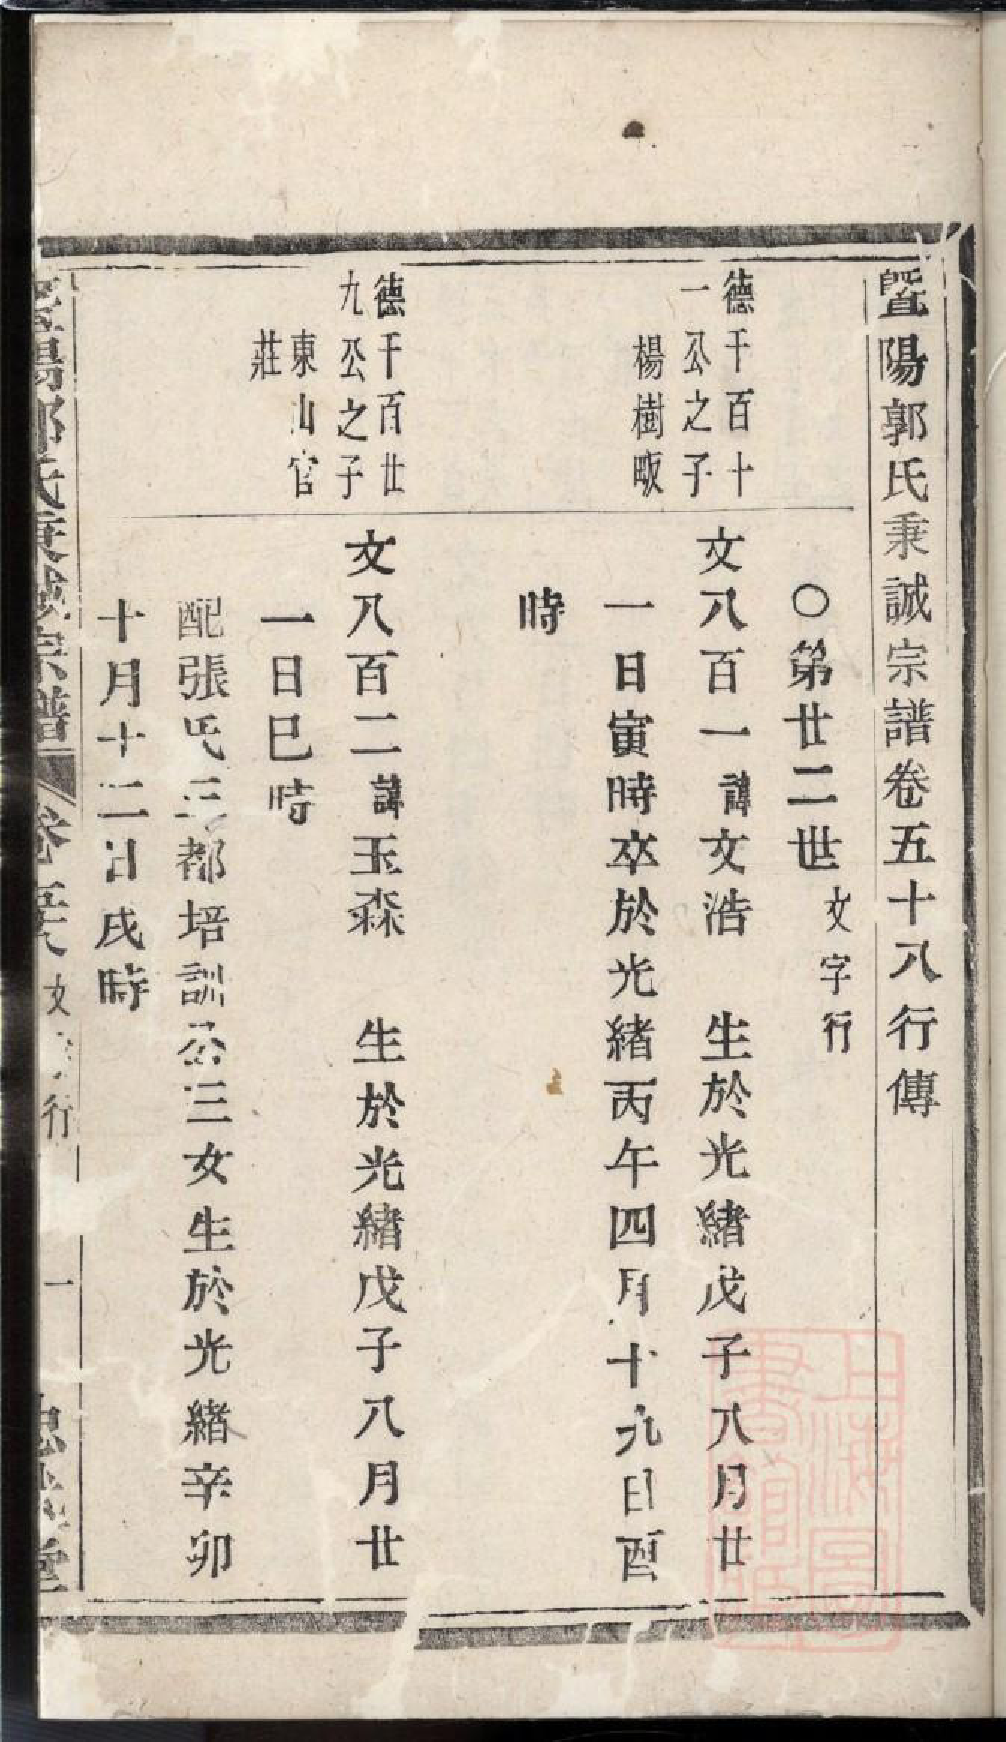 暨陽郭氏秉誠宗譜卷五十八行傳
○第廿二世文字行
德千百十
一公之子
楊樹畈
文八百一諱文浩 生於光緒戊子八月廿
一日寅時卒於光緒丙午四月十九日酉
時
德千百廿
九公之子
東山官
莊
文八百二諱玉森 生於光緒戊子八月廿
一日巳時
配張氏三都培訓公三女生於光緒辛卯
十月十二日戌時
暨陽郭氏秉誠宗譜 卷五十八 文 行 一 堂
上海圖書館藏